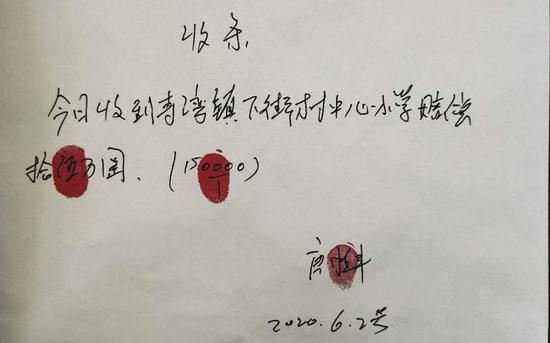 收条
今日收到青湾镇下街村中心小学赔偿
拾伍万圆、(150000)
2020.6.2号